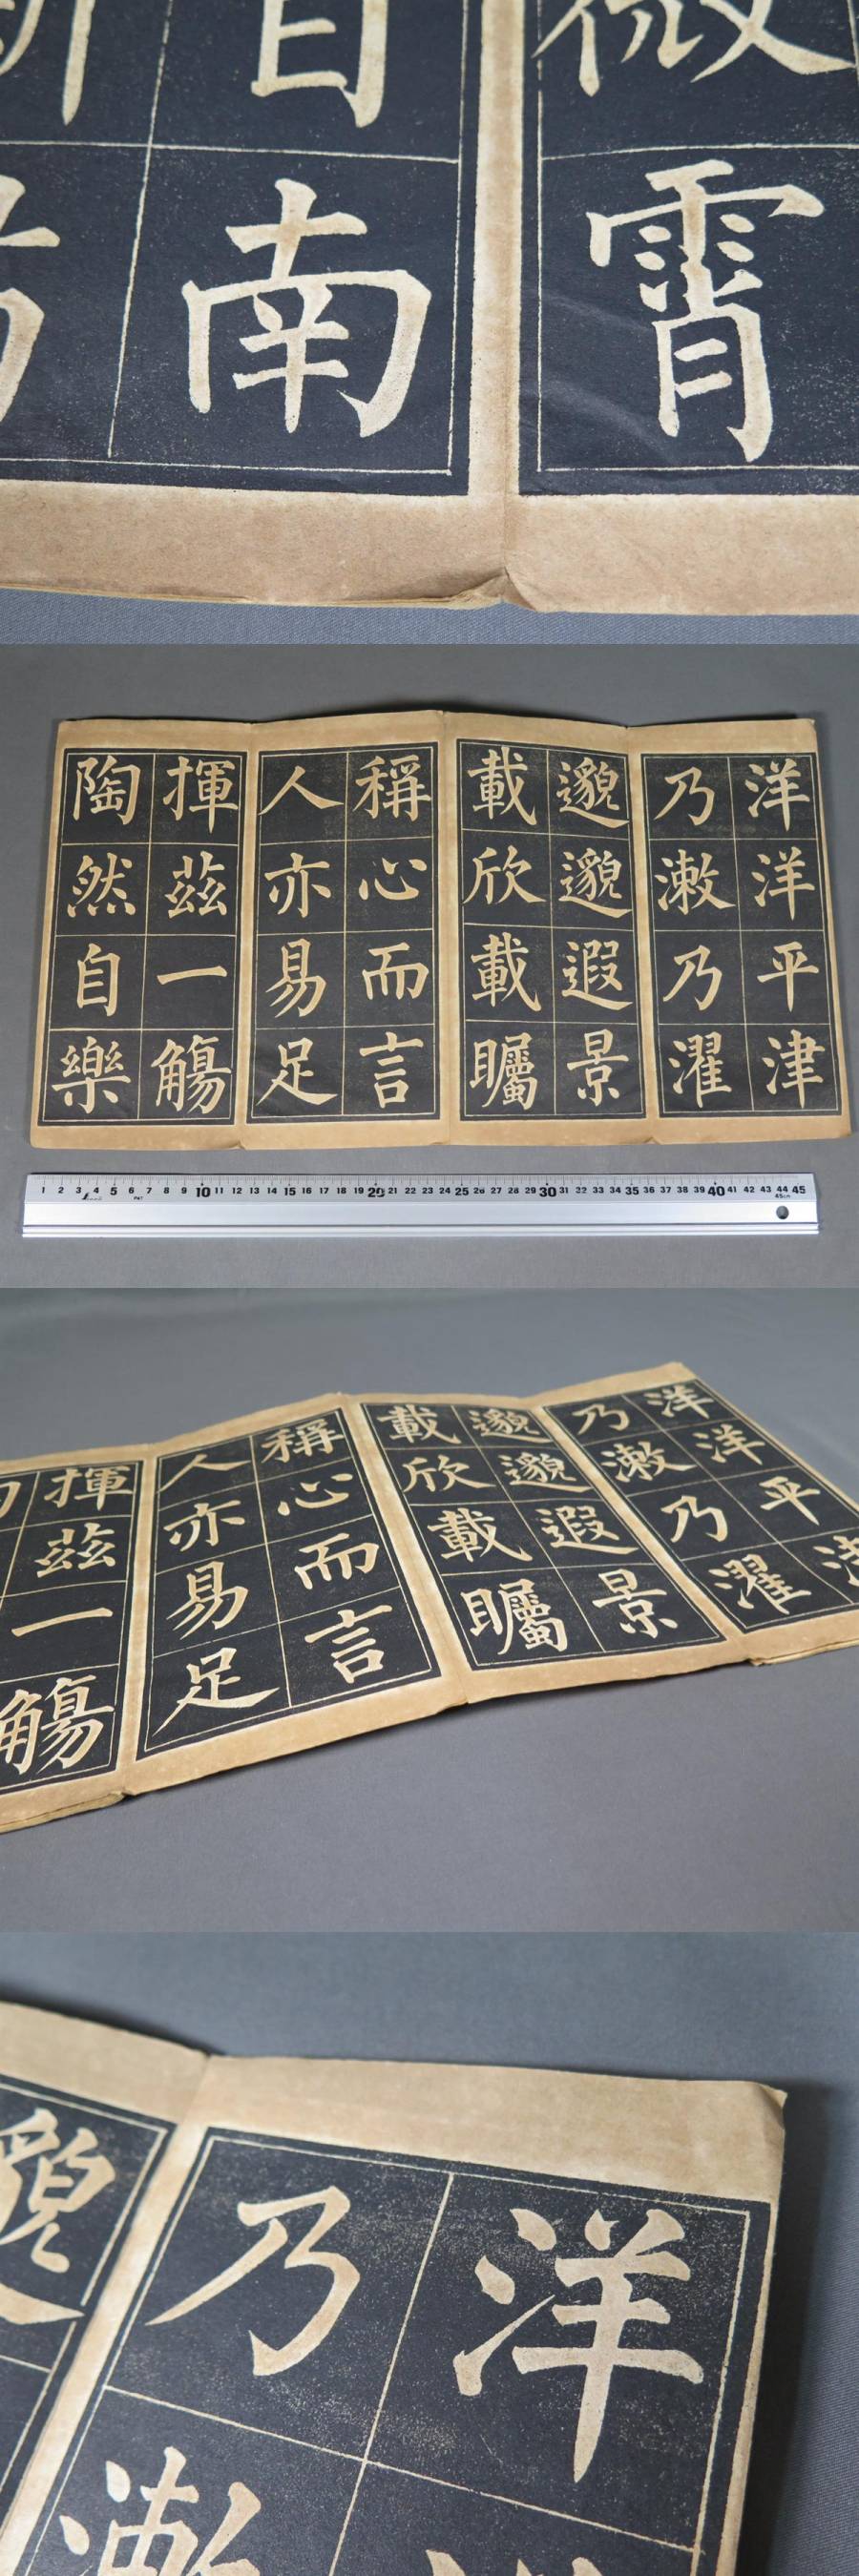 霄
南
洋洋平津
乃漱乃濯
邈邈遐景
載欣載矚
稱心而言
人亦易足
揮茲一觴
陶然自樂
1 2 3 4 5 6 7 8 9 10 11 12 13 14 15 16 17 18 19 20 21 22 23 24 25 26 27 28 29 30 31 32 33 34 35 36 37 38 39 40 41 42 43 44 45
45cm
洋洋平
乃漱乃濯
邈邈遐景
載欣載矚
稱心而言
人亦易足
揮茲一觴
洋
乃